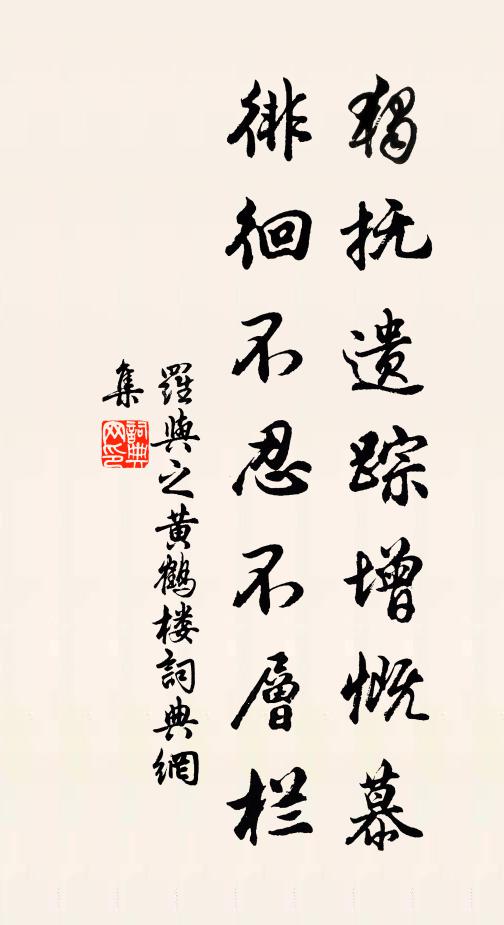 獨抚遗踪增慨慕
徘徊不忍不層栏
羅與之黄鶴楼詞典網
集
詞典
网印